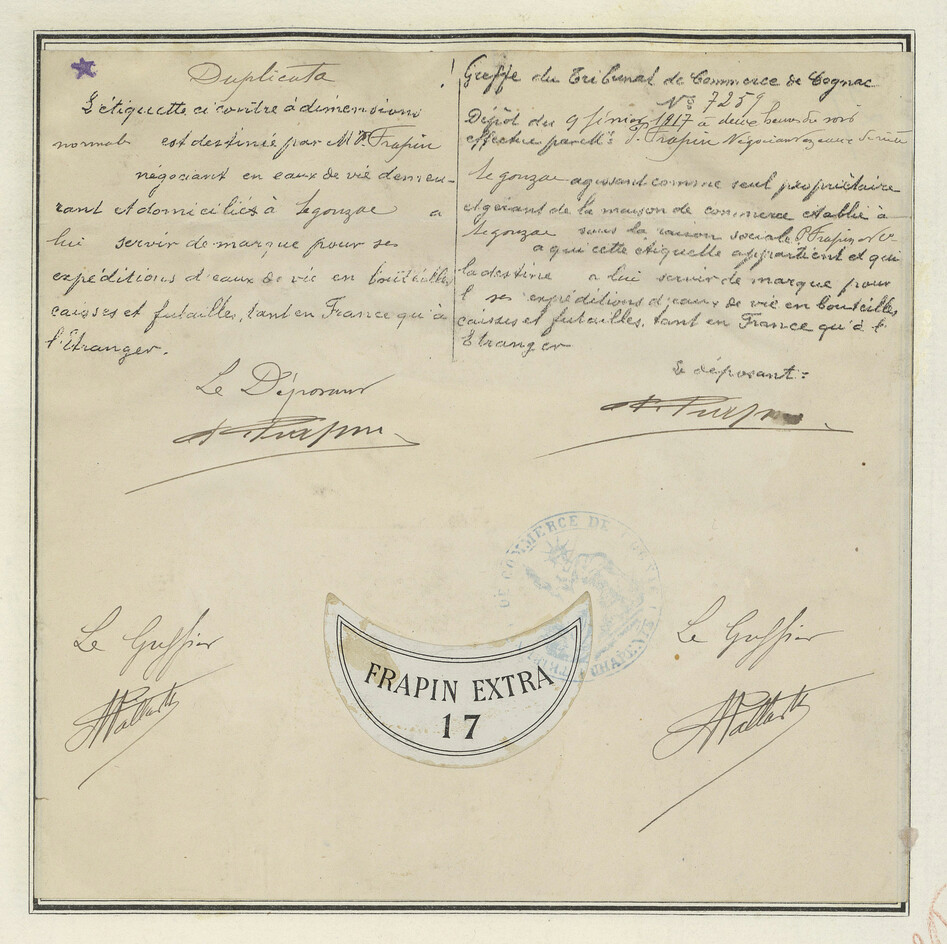 Duplicata
L'étiquette ci contre à dimensions
normale est destinée par M. P. Frapin
négociant en eaux de vie demeu-
rant et domicilié à Segonzac a
lui servir de marque pour ses
expéditions d'eaux de vie en bouteilles
caisses et futailles, tant en France qu'à
l'Etranger.
Le Déposant
P. Frapin
Greffe du Tribunal de Commerce de Cognac
No 7259
Dépôt du 9 février 1917 à deux heures du soir
effectué par M. P. Frapin Négociant en eaux de vie
Segonzac agissant comme seul propriétaire
et gérant de la maison de commerce établie à
Segonzac sous la raison sociale P. Frapin et Cie
a qui cette étiquette appartient et qui
la destine a lui servir de marque pour
ses expéditions d'eaux de vie en bouteilles
caisses et futailles, tant en France qu'à l'
Etranger
Le déposant :
P. Frapin
DE COMMERCE DE
CHARENTE
Le Greffier
FRAPIN EXTRA
17
Le Greffier